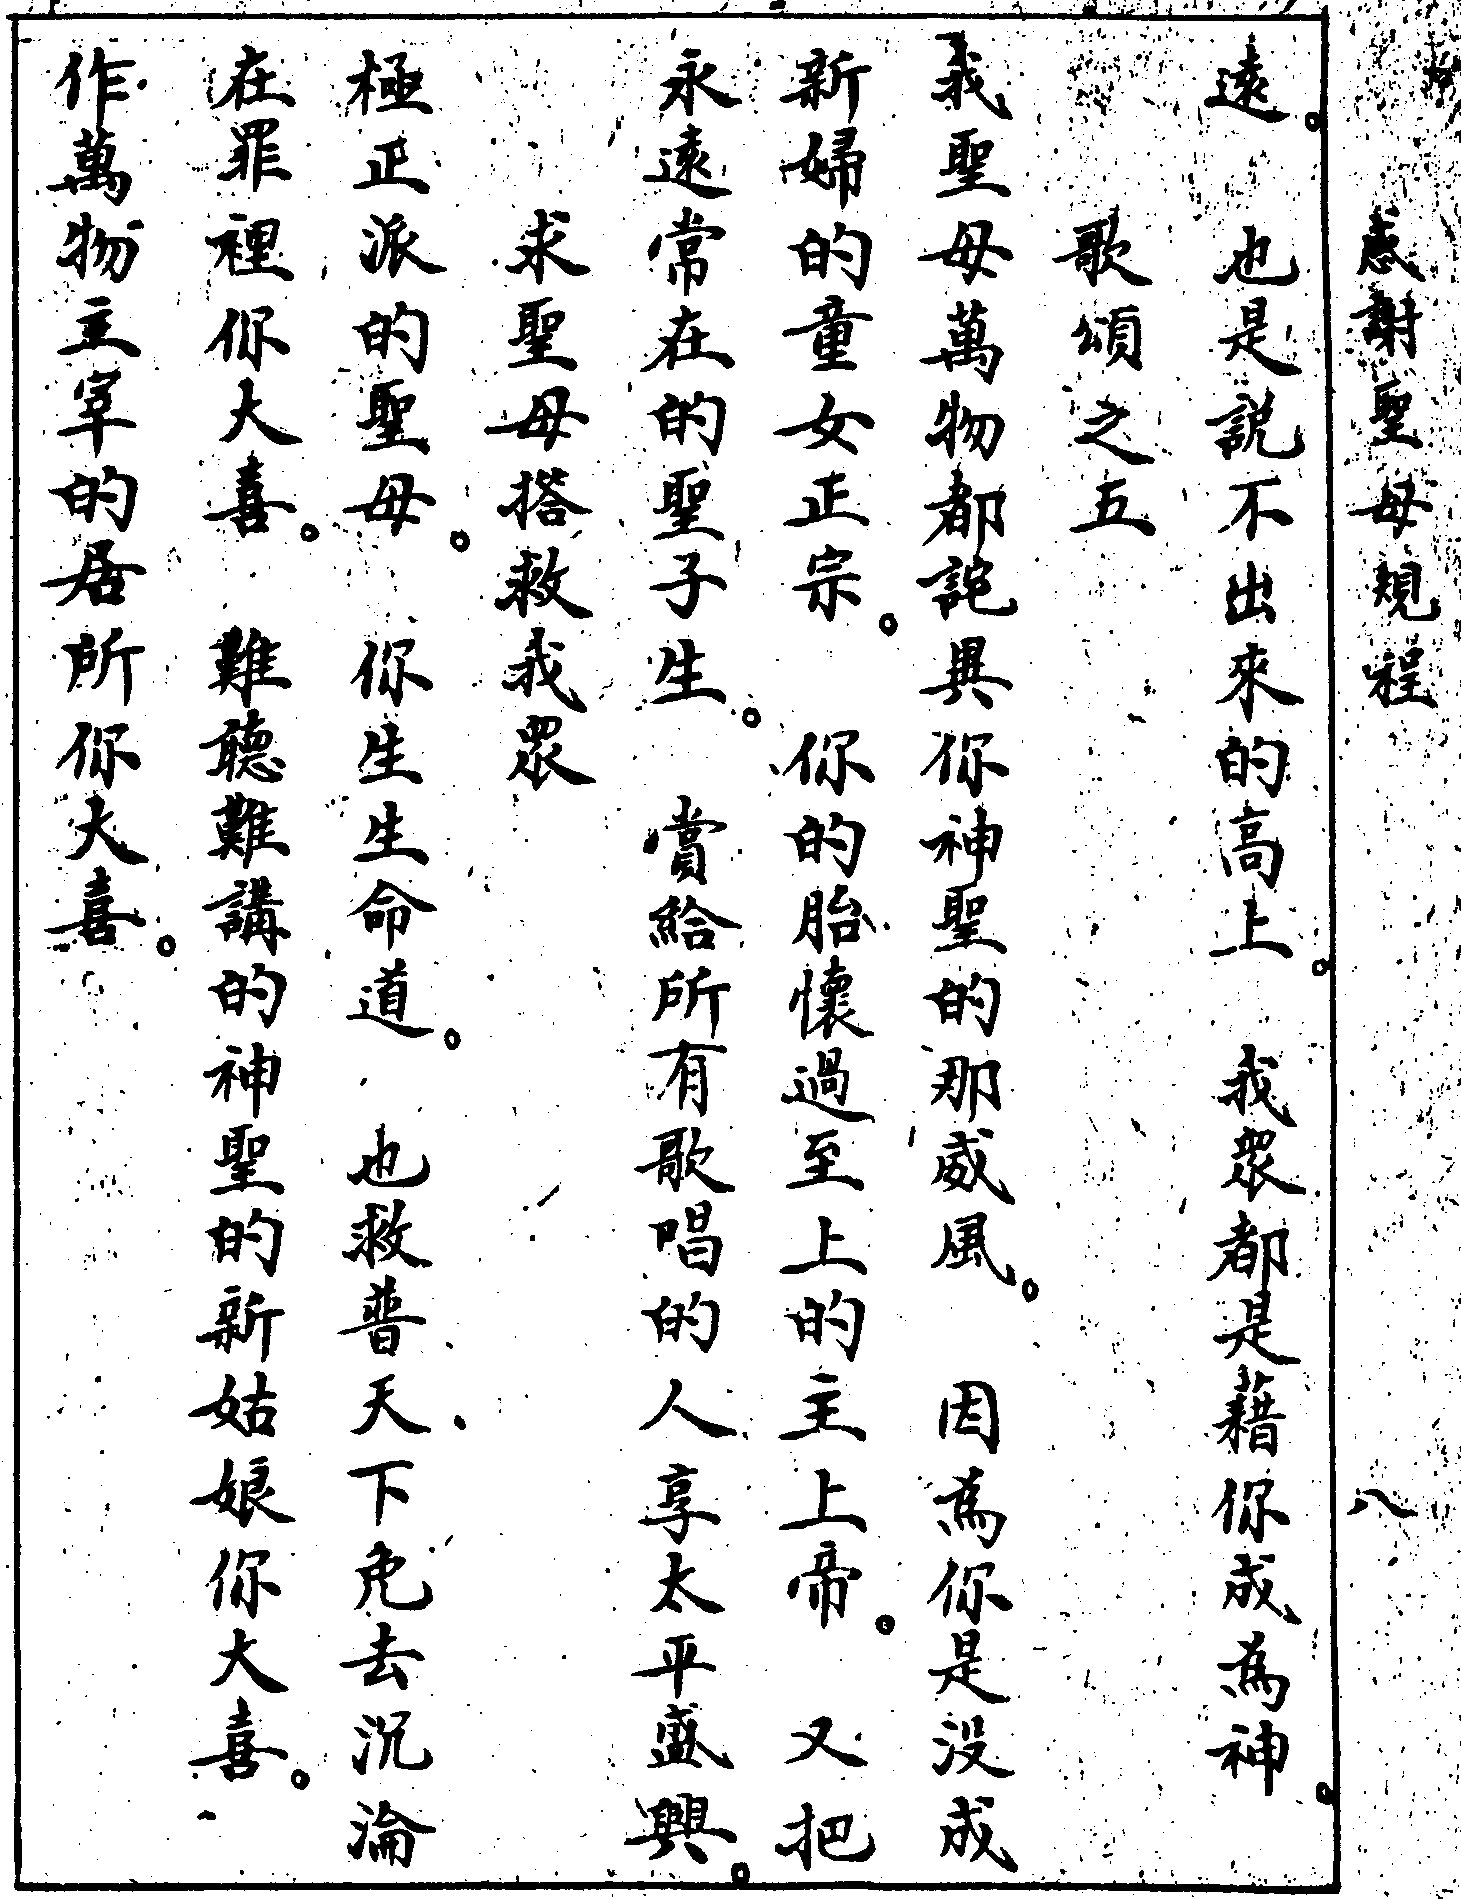 感謝聖母規程 八
遠。 也是説不出來的高上。 我衆都是藉你成為神。
歌頌之五
我聖母萬物都詫異你神聖的那威風。 因為你是没成
新婦的童女正宗。 你的胎懷過至上的主上帝。 又把
永遠常在的聖子生。 賞給所有歌唱的人享太平盛興。
求聖母搭救我衆
極正派的聖母。 你生生命道。 也救普天下免去沉淪
在罪裡你大喜。 難聽難講的神聖的新姑娘你大喜。
作萬物主宰的居所你大喜。